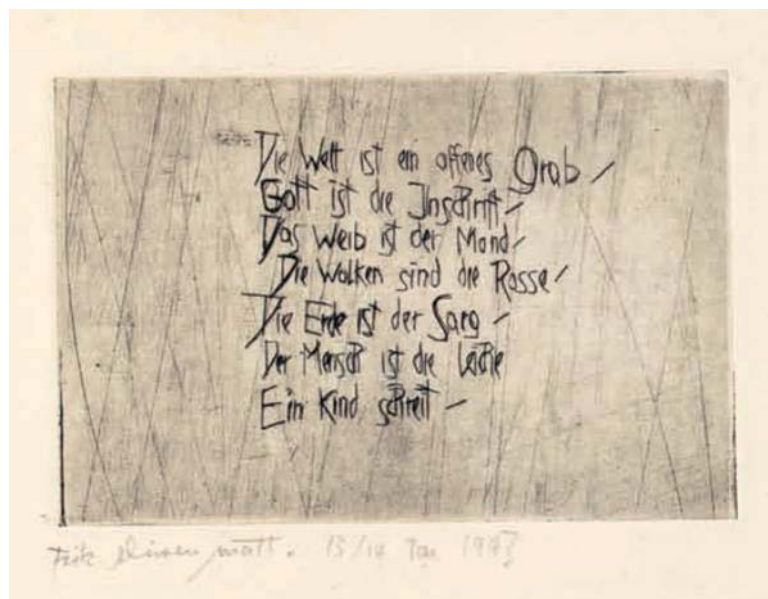 Die Welt ist ein offenes Grab /
Gott ist die Inschrift /
Das Weib ist der Mond /
Die Wolken sind die Rosse /
Die Erde ist der Sarg /
Der Mensch ist die Leiche
Ein Kind schreit /
Fritz Dürrenmatt. 13/14